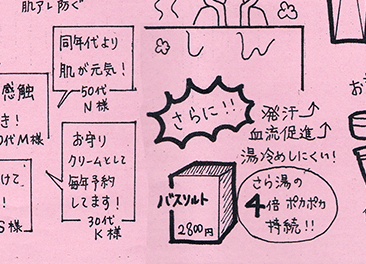 肌アレ防ぐ
同年代より
肌が元気!
50代
N様
感触
き!
代M様
お守り
クリームとして
毎年予約
してます!
30代
K様
けて
!
S様
さらに!!
発汗↑
血流促進↑
湯冷めしにくい!
バスソルト
2800円
さら湯の
4倍 ポカポカ
持続!!
お